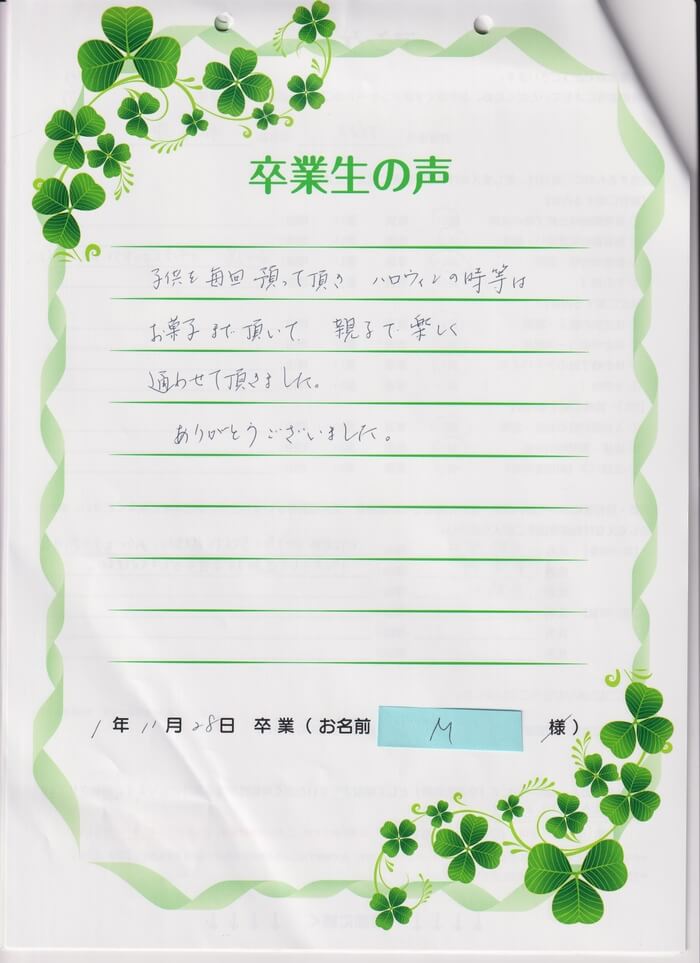 卒業生の声
子供を毎回預って頂き ハロウィンの時等は
お菓子まで頂いて 親子で楽しく
通わせて頂きました。
ありがとうございました。
1年11月28日 卒業(お名前 M 様)